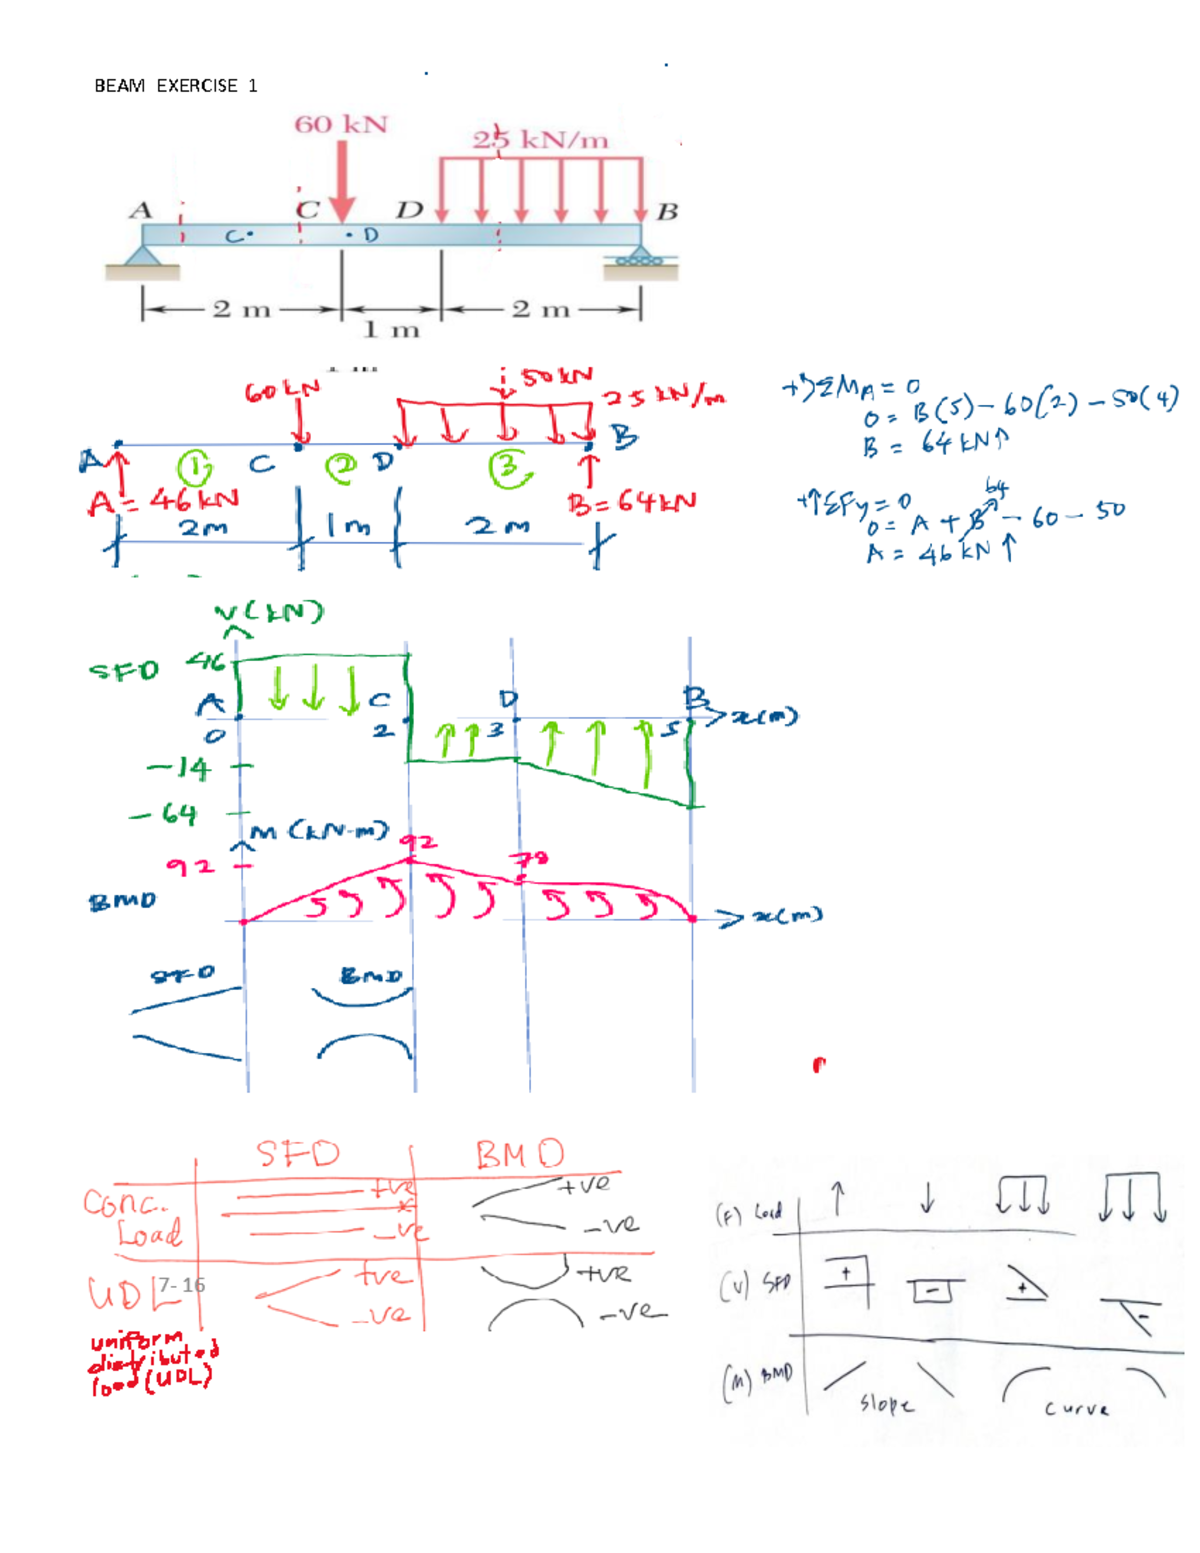 BEAM EXERCISE 1
60 kN
25 kN/m
A
C
D
B
C
D
2 m
1 m
2 m
60 kN
50 kN
25 kN/m
A
1
C
2
D
3
B
A = 46 kN
B = 64 kN
2m
1m
2m
ΣMA = 0
0 = B(5) - 60(2) - 50(4)
B = 64 kN↑
+↑ΣFy = 0
64
0 = A + B - 60 - 50
A = 46 kN ↑
V(kN)
SFD
46
A
C
D
B
0
2
3
5
x(m)
-14
-64
M (kN-m)
92
92
78
BMD
x(m)
SFD
BMD
SFD
BMD
Conc. Load
+ve
-ve
+ve
-ve
UDL
+ve
-ve
+ve
-ve
7-16
uniform
distributed
load (UDL)
(F) Load
(V) SFD
+
-
+
-
(M) BMD
slope
curve